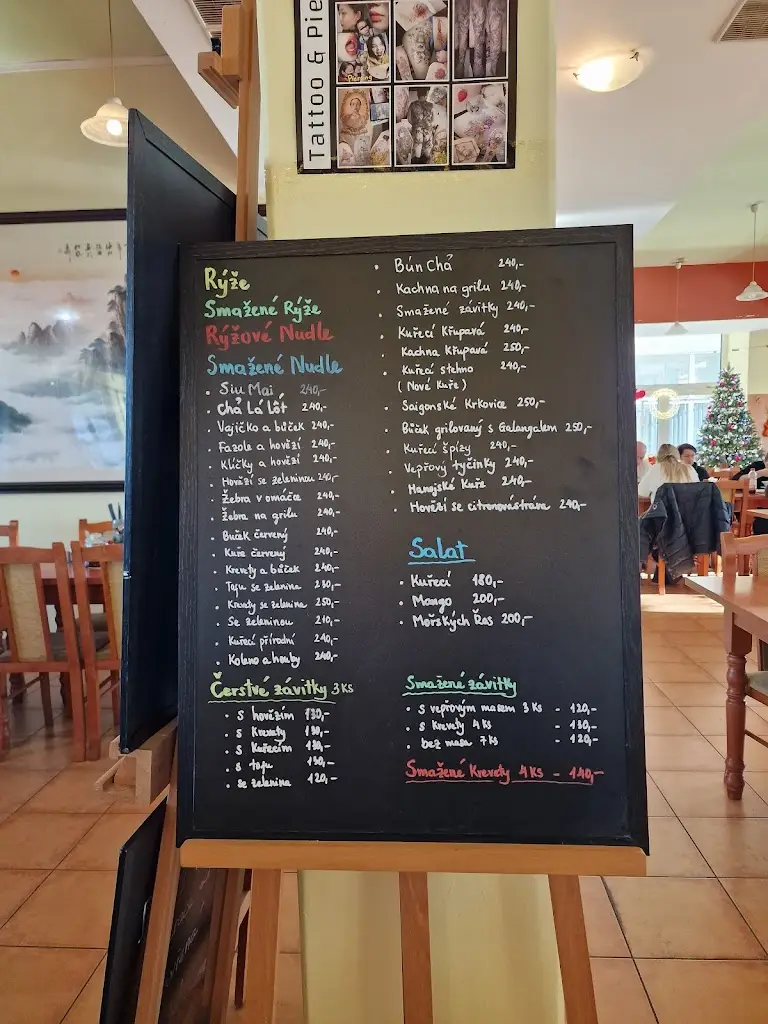 Tattoo & Pie
Rýže
Smažené Rýže
Rýžové Nudle
Smažené Nudle
• Siu Mai 240,-
• Chả Lá Lốt 240,-
• Vajíčko a bůček 240,-
• Fazole a hovězí 240,-
• Klíčky a hovězí 240,-
• Hovězí se zeleninou 240,-
• Žebra v omáčce 240,-
• Žebra na grilu 240,-
• Buček červený 240,-
• Kuře červený 240,-
• Krevety a bůček 240,-
• Tofu se zelenina 230,-
• Krevety se zelenina 250,-
• Se zeleninou 210,-
• Kuřecí přírodní 240,-
• Koleno a houby 240,-
Čerstvé závitky 3 KS
• s hovězím 130,-
• s Krevety 130,-
• s Kuřecím 130,-
• s tofu 130,-
• se zelenina 120,-
• Bún Chả 240,-
• Kachna na grilu 240,-
• Smažené závitky 240,-
• Kuřecí Křupavá 240,-
• Kachna Křupavá 250,-
• Kuřecí stehno 240,-
( Nové Kuře )
• Saigonské Krkovice 250,-
• Bůček grilovaný s Galangalem 250,-
• Kuřecí špízy 240,-
• Vepřový tyčinky 240,-
• Hanojské Kuře 240,-
• Hovězí se citronovástráva 240,-
Salat
• Kuřecí 180,-
• Mango 200,-
• Mořských Řas 200,-
Smažené závitky
• s vepřovým masem 3 Ks - 120,-
• s Krevety 4 Ks - 130,-
• bez masa 7 Ks - 120,-
Smažené Krevety 4 Ks - 140,-